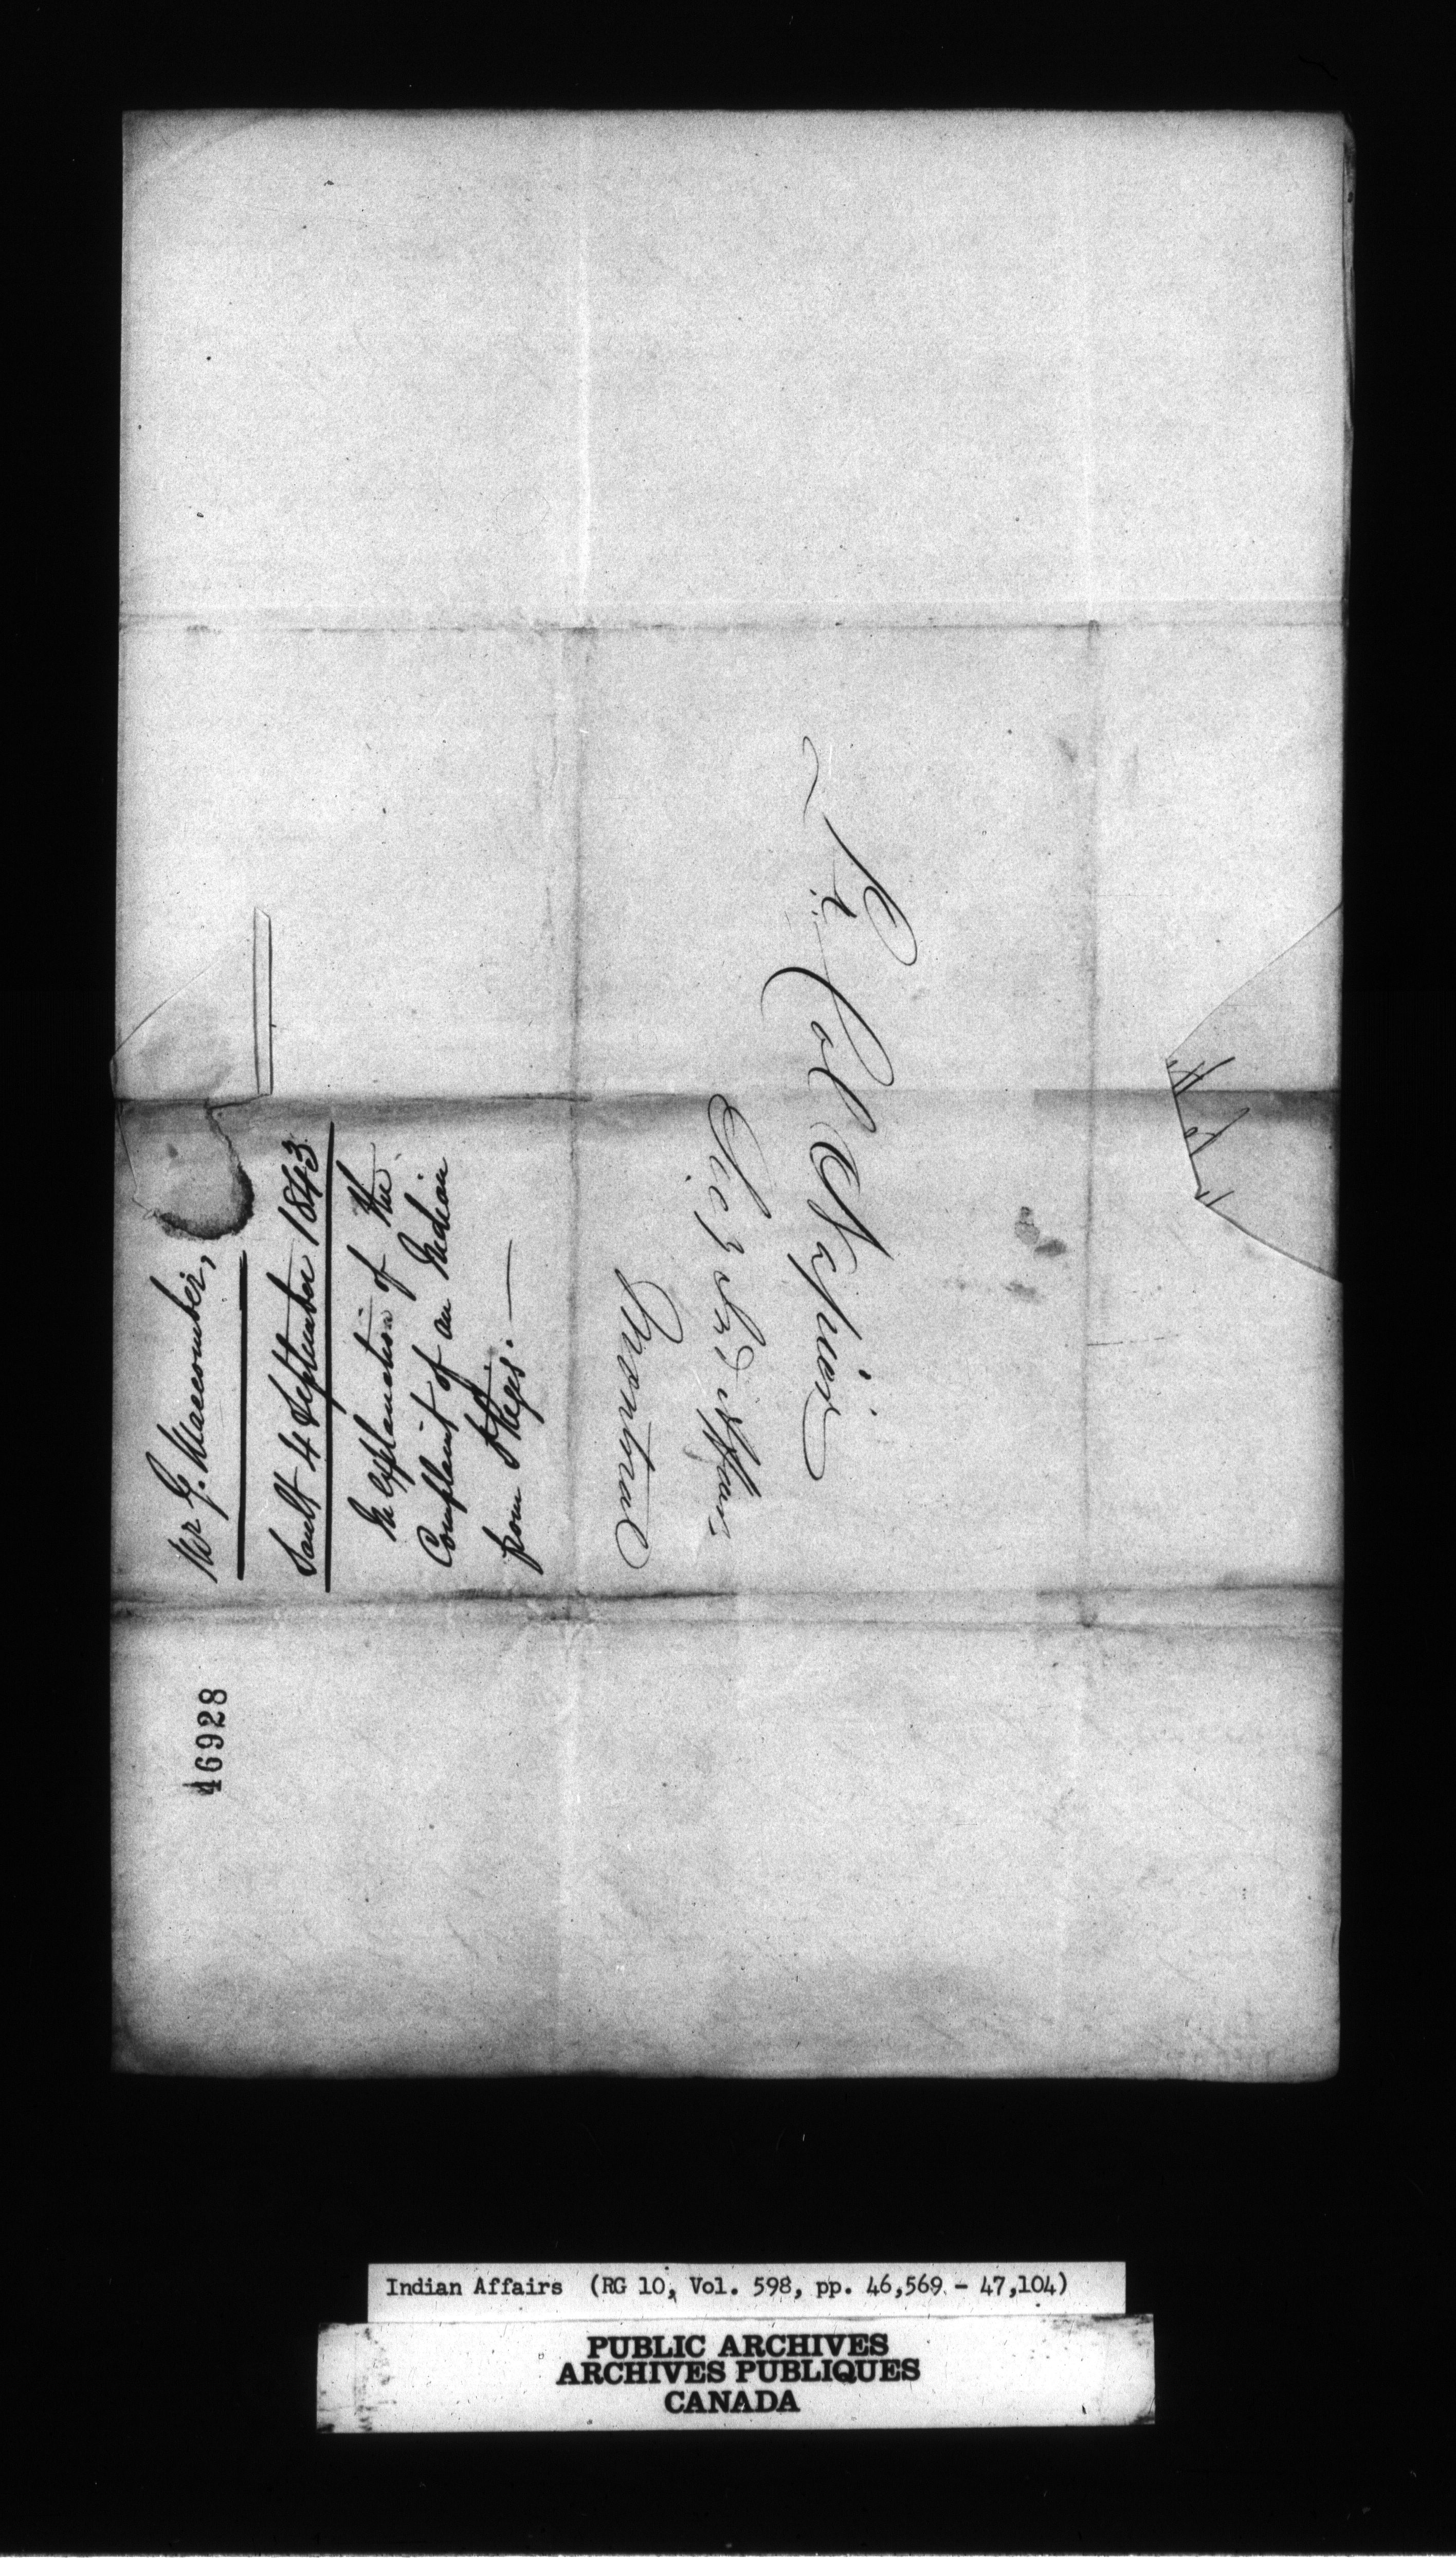 Mr G. Maccomber,
Sault 4 September 1843
In explanation of the
Complaint of an Indian
from St Regis. —
Lt Col Napier
Sec y Ind n Affairs
Montreal
46928
Indian Affairs (RG 10, Vol. 598, pp. 46,569 - 47,104)
PUBLIC ARCHIVES
ARCHIVES PUBLIQUES
CANADA